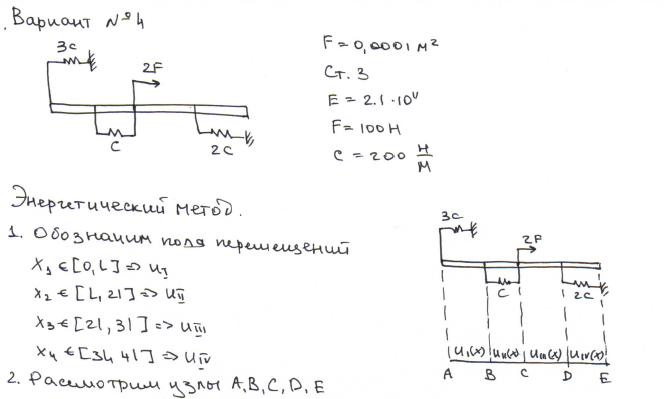 Вариант №4
3c
2F
c
2c
F=0,0001 м²
Ст. 3
E = 2.1·10¹¹
F=100Н
c = 200 Н/М
Энергетический метод.
1. Обозначим поля перемещений
x₁ ∈ [0, L] => u_I
x₂ ∈ [L, 2l] => u_II
x₃ ∈ [2l, 3l] => u_III
x₄ ∈ [3l, 4l] => u_IV
2. Рассмотрим узлы A, B, C, D, E
3c
2F
c
2c
u_I(x) u_II(x) u_III(x) u_IV(x)
A B C D E